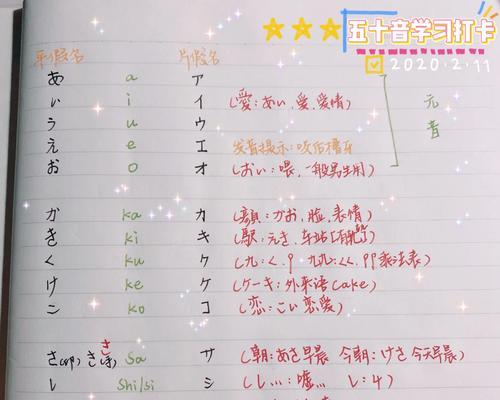 五十音学习打卡
2020.2.11
平假名 片假名
あ a ア
い i イ (愛:あい,爱,爱情)
う u ウ
え e エ 发音提示:咬后槽牙
お o オ (おい:喂,一般男生用)
元音
か ka カ (顔:かお,脸,表情)
き ki キ (駅:えき,车站
く ku ク (九:く,9 九九:くく,99乘法表)
け ke ケ (ケーキ:外来语cake)
こ ko コ (恋:こい 恋爱)
さ(印) さ(手) sa サ (朝:あさ早晨 今朝:けさ 今天早晨)
し shi/si シ (しい…:嘘… し:4)